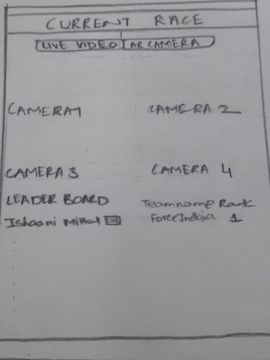 CURRENT RACE
LIVE VIDEO AR CAMERA
CAMERA 1 CAMERA 2
CAMERA 3 CAMERA 4
LEADER BOARD Teamname Rank
Ishaani Mittal Force India 1